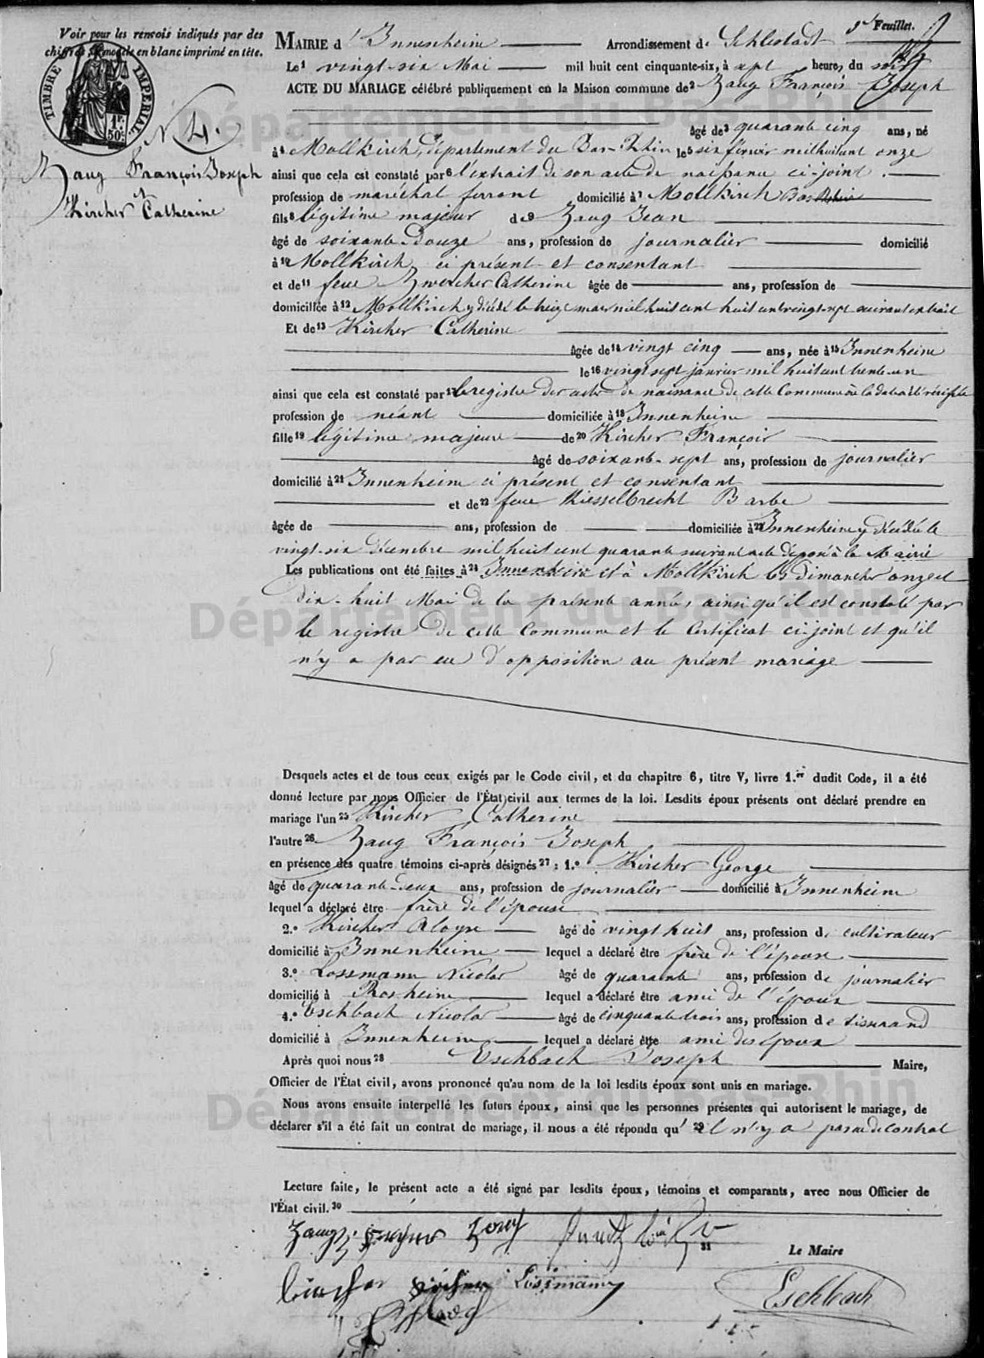 Voir pour les renvois indiqués par des
chiffres le modèle en blanc imprimé en tête.
1er Feuillet.
TIMBRE IMPÉRIAL.
1 F. 50 c.
N 4.
Zaug François Joseph
&
Kircher Catherine
MAIRIE d'Innenheim Arrondissement de Schlestadt
Le 1 vingt-six Mai mil huit cent cinquante-six, à sept heures, du soir
ACTE DU MARIAGE célébré publiquement en la Maison commune de 2 Zaug François Joseph
âgé de 3 quarante cinq ans, né
à 4 Mollkirch, département du Bas-Rhin le 5 six février mil huit cent onze
ainsi que cela est constaté par 6 l'extrait de son acte de naissance ci-joint.
profession de maréchal ferrant domicilié à 7 Mollkirch
fils 8 légitime majeur de 9 Zaug Jean
âgé de soixante-douze ans, profession de journalier domicilié
à 10 Mollkirch, ci présent et consentant
et de 11 feue Zwercher Catherine âgée de ans, profession de
domiciliée à 12 Mollkirch y décédée le treize mars mil huit cent huit cent vingt-sept suivant extrait
Et de 13 Kircher Catherine
âgée de 14 vingt cinq ans, née à 15 Innenheim
le 16 vingt sept janvier mil huit cent trente-un
ainsi que cela est constaté par 17 le registre des actes de naissance de cette Commune à la date
profession de néant domiciliée à 18 Innenheim
fille 19 légitime majeure de 20 Kircher François
âgé de soixante-sept ans, profession de journalier
domicilié à 21 Innenheim ci présent et consentant
et de 22 feue Kiesselbrecht Barbe
âgée de ans, profession de domiciliée à 23 Innenheim y décédée le
vingt-six décembre mil huit cent quarante suivant acte déposé à la Mairie
Les publications ont été faites à 24 Innenheim et à Mollkirch les dimanches onze et
dix-huit Mai de la présente année, ainsi qu'il est constaté par
le registre de cette Commune et le certificat ci-joint et qu'il
n'y a pas eu d'opposition au présent mariage
Desquels actes et de tous ceux exigés par le Code civil, et du chapitre 6, titre V, livre 1.er dudit Code, il a été
donné lecture par nous Officier de l'État civil aux termes de la loi. Lesdits époux présents ont déclaré prendre en
mariage l'un 25 Kircher Catherine
l'autre 26 Zaug François Joseph
en présence des quatre témoins ci-après désignés 27 : 1.° Kircher George
âgé de quarante-deux ans, profession de journalier domicilié à Innenheim
lequel a déclaré être frère de l'épouse
2.° Kircher Aloyse âgé de vingt huit ans, profession de cultivateur
domicilié à Innenheim lequel a déclaré être frère de l'épouse
3.° Lossmann Nicolas âgé de quarante ans, profession de journalier
domicilié à Rosheim lequel a déclaré être ami de l'époux
4.° Eschbach Nicolas âgé de cinquante trois ans, profession de tisserand
domicilié à Innenheim lequel a déclaré être ami des époux
Après quoi nous 28 Eschbach Joseph Maire,
Officier de l'État civil, avons prononcé qu'au nom de la loi lesdits époux sont unis en mariage.
Nous avons ensuite interpellé les futurs époux, ainsi que les personnes présentes qui autorisent le mariage, de
déclarer s'il a été fait un contrat de mariage, il nous a été répondu qu' 29 il n'y a pas eu de contrat
Lecture faite, le présent acte a été signé par lesdits époux, témoins et comparants, avec nous Officier de
l'État civil. 30
31
Le Maire
Lossmann
Eschbach
Département du Bas-Rhin
Département du Bas-Rhin
Département du Bas-Rhin